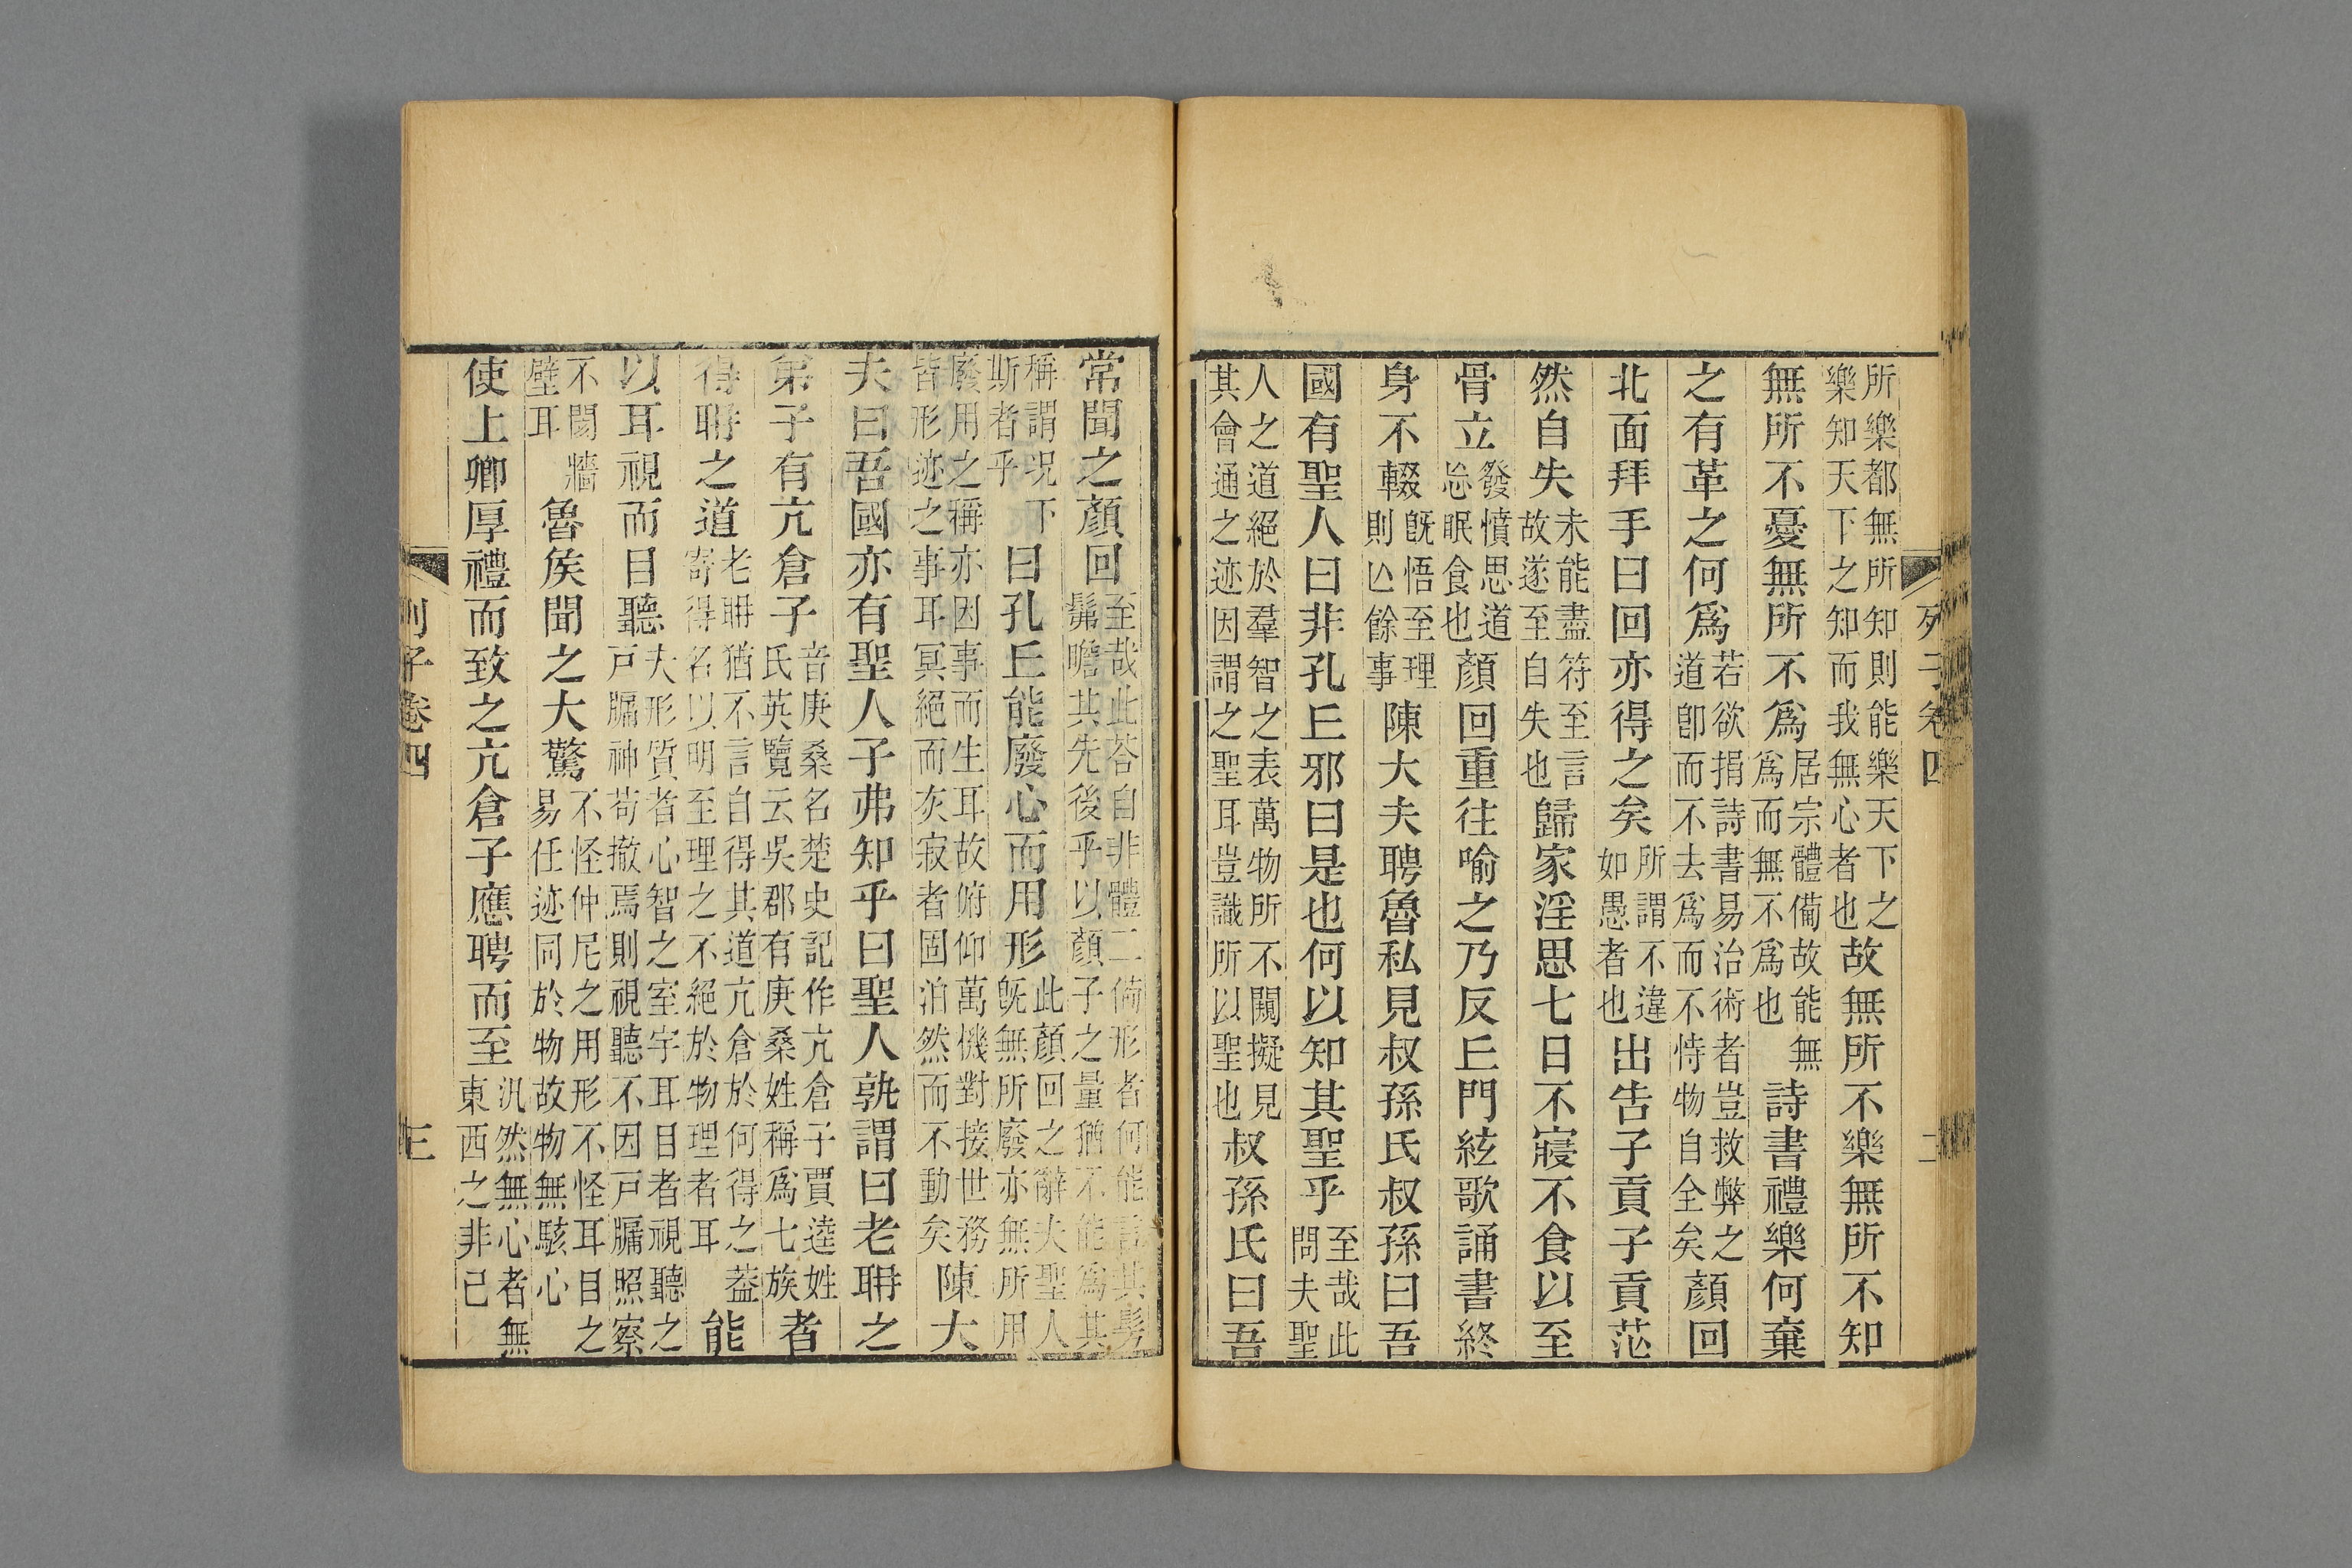 列子卷四
二
所樂都無所知則能樂天下之樂知天下之知而我無心者也故無所不樂無所不知
無所不憂無所不爲居宗體備故能無爲而無不爲也詩書禮樂何棄
之有革之何爲若欲捐詩書易治術者豈救弊之道卽而不去爲而不恃物自全矣顏回
北面拜手曰回亦得之矣所謂不違如愚者也出告子貢子貢茫
然自失未能盡符至言故遂至自失也歸家淫思七日不寢不食以至
骨立發憤思道忘眠食也顏回重往喻之乃反丘門絃歌誦書終
身不輟旣悟至理則亾餘事陳大夫聘魯私見叔孫氏叔孫曰吾
國有聖人曰非孔丘邪曰是也何以知其聖乎至哉此問夫聖
人之道絕於羣智之表萬物所不闚擬見其會通之迹因謂之聖耳豈識所以聖也叔孫氏曰吾
常聞之顏回至哉此荅自非體二備形者何能言其髣髴瞻其先後乎以顏子之量猶不能爲其
稱謂况下斯者乎曰孔丘能廢心而用形此顏回之辭夫聖人旣無所廢亦無所用
廢用之稱亦因事而生耳故俯仰萬機對接世務皆形迹之事耳冥絕而灰寂者固泊然而不動矣陳大
夫曰吾國亦有聖人子弗知乎曰聖人孰謂曰老聃之
弟子有亢倉子音庚桑名楚史記作亢倉子賈逵姓氏英覽云吳郡有庚桑姓稱爲七族者
得聃之道老聃猶不言自得其道亢倉於何得之葢寄得名以明至理之不絕於物理者耳能
以耳視而目聽夫形質者心智之室宇耳目者視聽之戶牖神苟撤焉則視聽不因戶牖照察
不閡牆壁耳魯矦聞之大驚不怪仲尼之用形不怪耳目之易任迹同於物故物無駭心
使上卿厚禮而致之亢倉子應聘而至汎然無心者無東西之非己
列子卷四
三